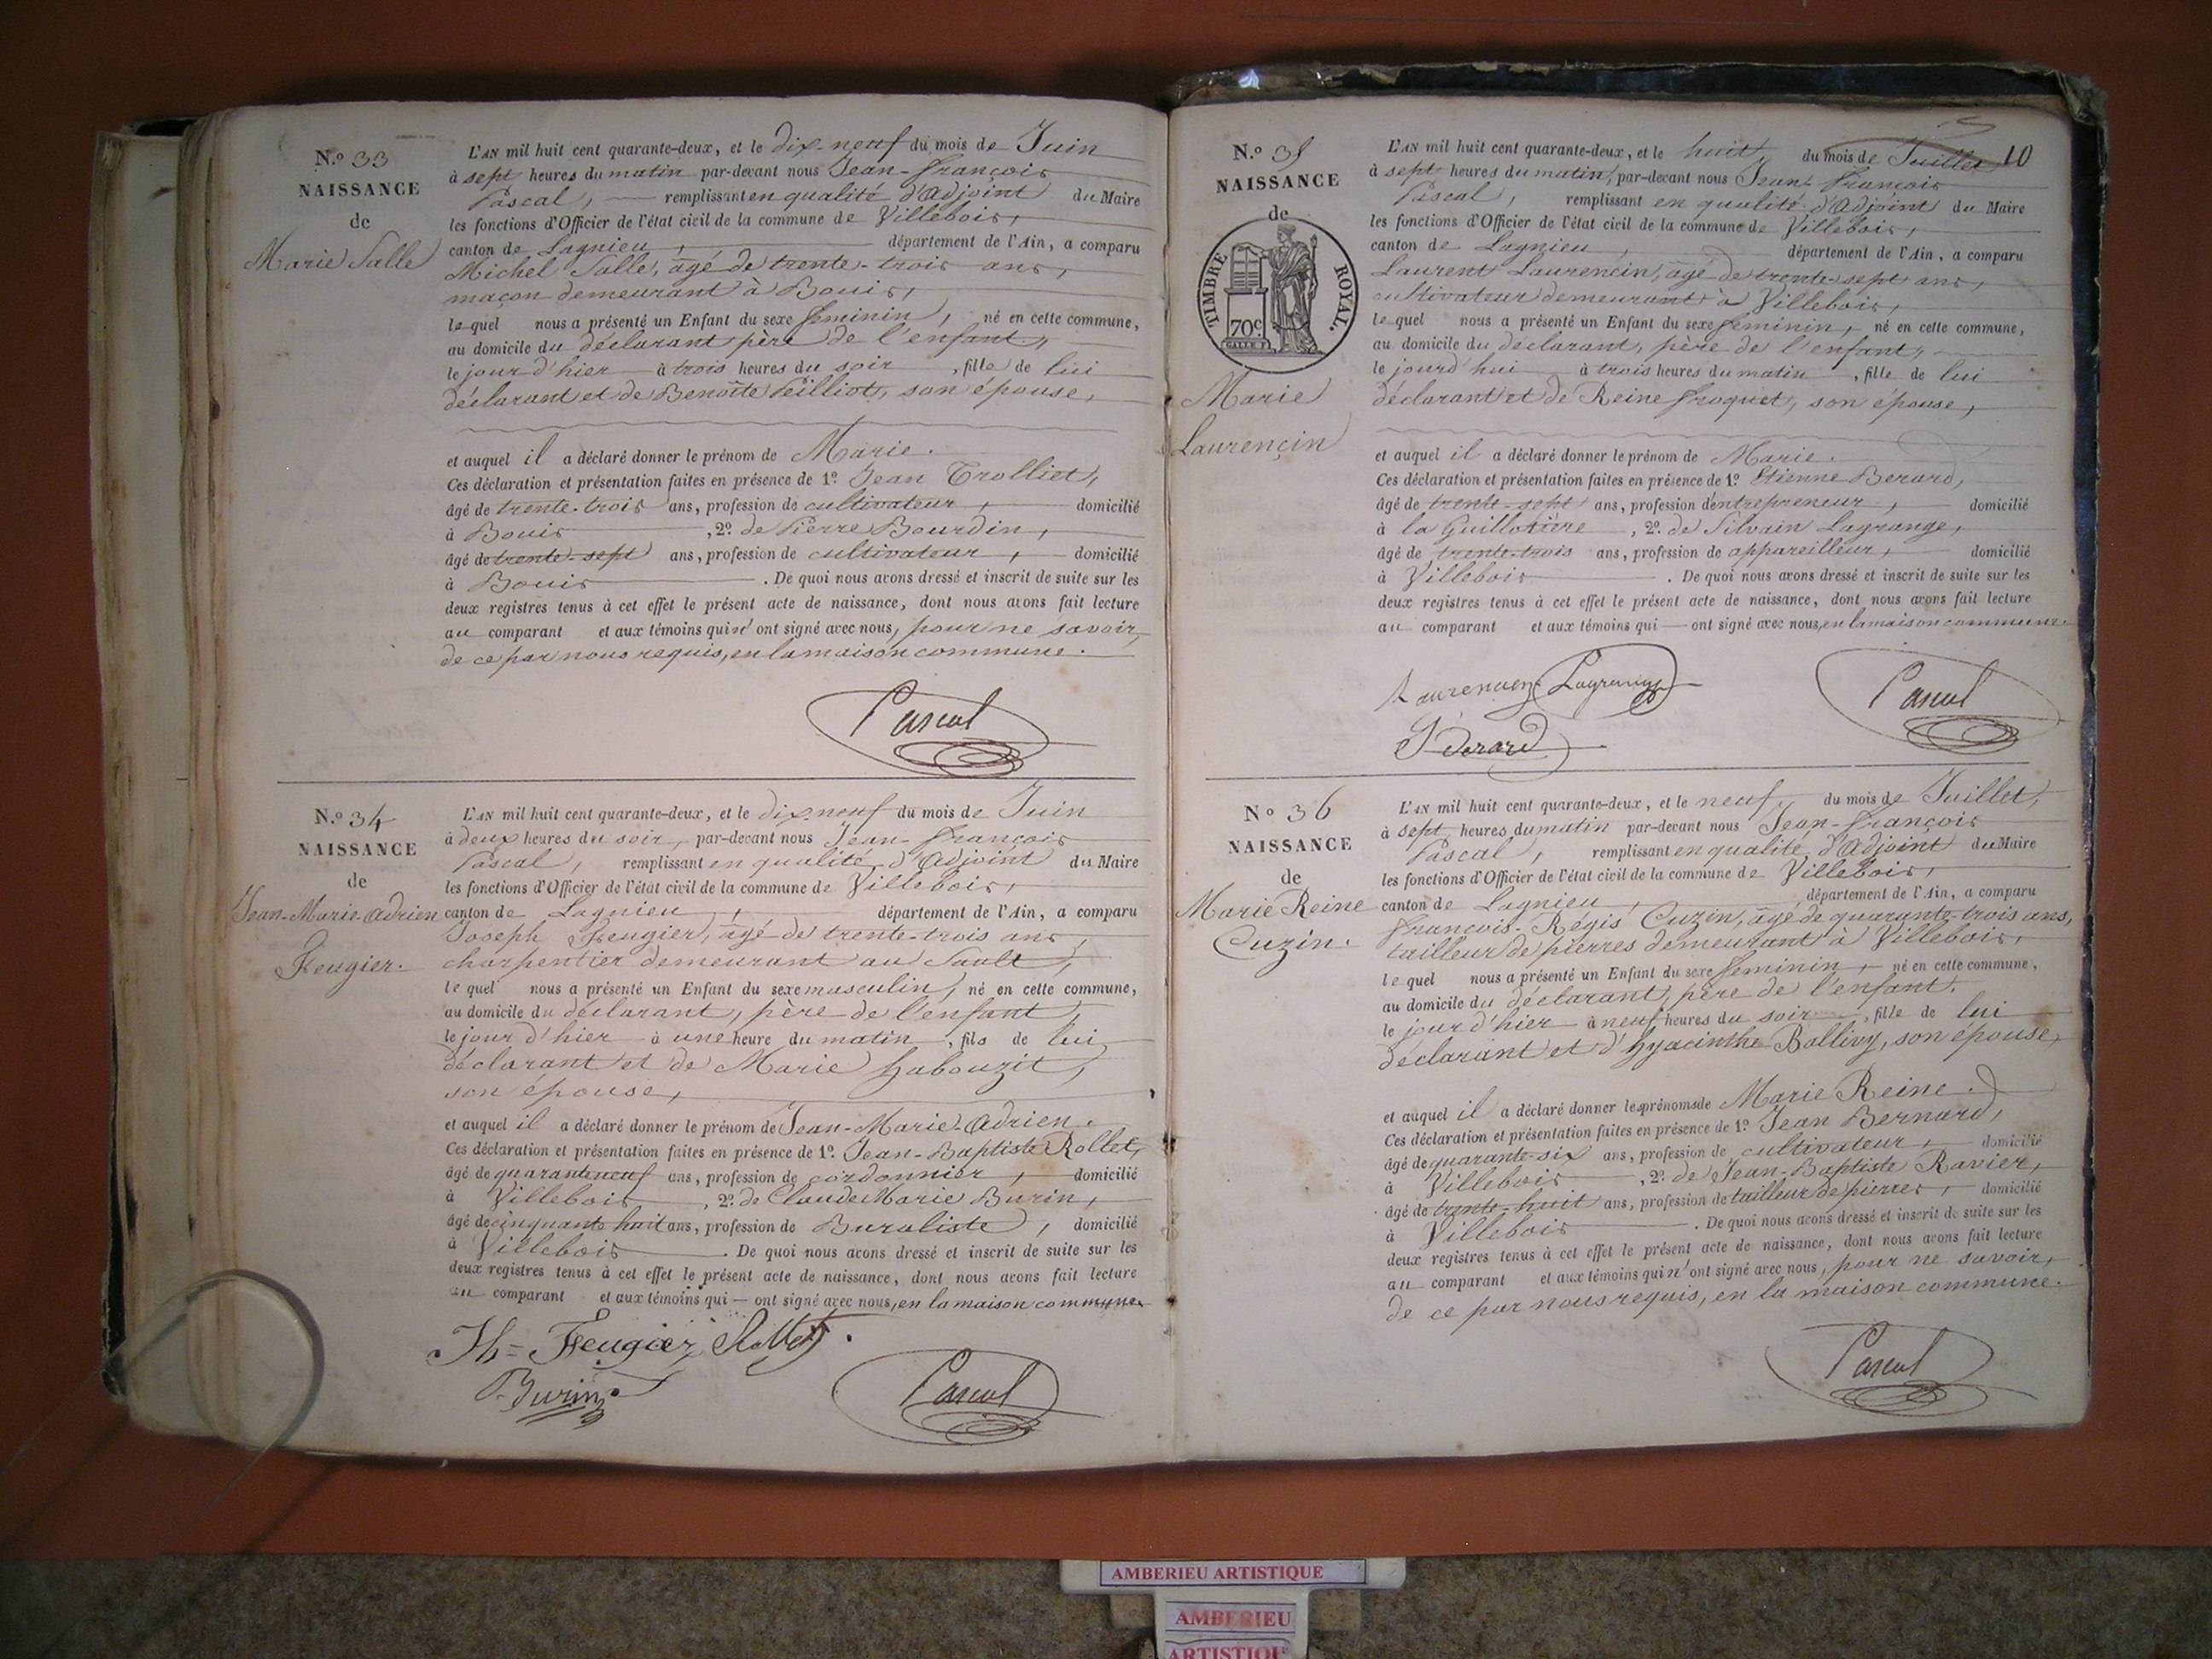 N.º 33
NAISSANCE
de
Marie Salle
L'AN mil huit cent quarante-deux, et le dix-neuf du mois de Juin
à sept heures du matin par-devant nous Jean-François
Pascal, remplissant en qualité d'Adjoint du Maire
les fonctions d'Officier de l'état civil de la commune de Villebois,
canton de Lagnieu, département de l'Ain, a comparu
Michel Salle, âgé de trente-trois ans,
maçon demeurant à Bouis,
lequel nous a présenté un Enfant du sexe feminin, né en cette commune,
au domicile du déclarant père de l'enfant,
le jour d'hier à trois heures du soir, fille de lui
déclarant et de Benoîte Peilliot, son épouse,
et auquel il a déclaré donner le prénom de Marie.
Ces déclaration et présentation faites en présence de 1º Jean Trolliet,
âgé de trente-trois ans, profession de cultivateur, domicilié
à Bouis, 2º de Pierre Bourdin,
âgé de trente-sept ans, profession de cultivateur, domicilié
à Bouis. De quoi nous avons dressé et inscrit de suite sur les
deux registres tenus à cet effet le présent acte de naissance, dont nous avons fait lecture
au comparant et aux témoins qui n'ont signé avec nous, pour ne savoir,
de ce par nous requis, en la maison commune.
Pascal
N.º 34
NAISSANCE
de
Jean-Marie-Adrien
Feugier.
L'AN mil huit cent quarante-deux, et le dix-neuf du mois de Juin
à deux heures du soir, par-devant nous Jean-François
Pascal, remplissant en qualité d'Adjoint du Maire
les fonctions d'Officier de l'état civil de la commune de Villebois,
canton de Lagnieu, département de l'Ain, a comparu
Joseph Feugier, âgé de trente-trois ans,
charpentier demeurant au Sault,
lequel nous a présenté un Enfant du sexe masculin, né en cette commune,
au domicile du déclarant, père de l'enfant,
le jour d'hier à une heure du matin, fils de lui
déclarant et de Marie Habouzit,
son épouse,
et auquel il a déclaré donner le prénom de Jean-Marie-Adrien.
Ces déclaration et présentation faites en présence de 1º Jean-Baptiste Rollet,
âgé de quarante neuf ans, profession de cordonnier, domicilié
à Villebois, 2º de Claude Marie Burin,
âgé de cinquante huit ans, profession de Buraliste, domicilié
à Villebois. De quoi nous avons dressé et inscrit de suite sur les
deux registres tenus à cet effet le présent acte de naissance, dont nous avons fait lecture
au comparant et aux témoins qui — ont signé avec nous, en la maison commune.
Jh = Feugier Rollet
Burin
Pascal
10
N.º 35
NAISSANCE
de
TIMBRE ROYAL.
70c
Marie
Laurençin
L'AN mil huit cent quarante-deux, et le huit du mois de Juillet
à sept heures du matin, par-devant nous Jean-François
Pascal, remplissant en qualité d'Adjoint du Maire
les fonctions d'Officier de l'état civil de la commune de Villebois,
canton de Lagnieu, département de l'Ain, a comparu
Laurent Laurencin, âgé de trente-sept ans,
cultivateur demeurant à Villebois,
lequel nous a présenté un Enfant du sexe feminin, né en cette commune,
au domicile du déclarant, père de l'enfant,
le jourd'hui à trois heures du matin, fille de lui
déclarant et de Reine Froquet, son épouse,
et auquel il a déclaré donner le prénom de Marie.
Ces déclaration et présentation faites en présence de 1º Etienne Berard,
âgé de trente-sept ans, profession d'entrepreneur, domicilié
à la Guillotière, 2º de Silvain Lagrange,
âgé de trente-trois ans, profession de appareilleur, domicilié
à Villebois. De quoi nous avons dressé et inscrit de suite sur les
deux registres tenus à cet effet le présent acte de naissance, dont nous avons fait lecture
au comparant et aux témoins qui — ont signé avec nous, en la maison commune.
Laurencin Lagrange
Berard
Pascal
Nº 36
NAISSANCE
de
Marie Reine
Cuzin.
L'AN mil huit cent quarante-deux, et le neuf du mois de Juillet,
à sept heures du matin par-devant nous Jean-François
Pascal, remplissant en qualité d'Adjoint du Maire
les fonctions d'Officier de l'état civil de la commune de Villebois,
canton de Lagnieu, département de l'Ain, a comparu
François-Régis Cuzin, âgé de quarante-trois ans,
tailleur de pierres demeurant à Villebois,
lequel nous a présenté un Enfant du sexe feminin, né en cette commune,
au domicile du déclarant, père de l'enfant.
le jour d'hier à neuf heures du soir, fille de lui
déclarant et d'hyacinthe Bollivy, son épouse,
et auquel il a déclaré donner les prénoms de Marie Reine.
Ces déclaration et présentation faites en présence de 1º Jean Bernard,
âgé de quarante-six ans, profession de cultivateur, domicilié
à Villebois, 2º de Jean-Baptiste Ravier,
âgé de trente-huit ans, profession de tailleur de pierres, domicilié
à Villebois. De quoi nous avons dressé et inscrit de suite sur les
deux registres tenus à cet effet le présent acte de naissance, dont nous avons fait lecture
au comparant et aux témoins qui n'ont signé avec nous, pour ne savoir,
de ce par nous requis, en la maison commune.
Pascal
AMBERIEU ARTISTIQUE
AMBERIEU
ARTISTIQUE